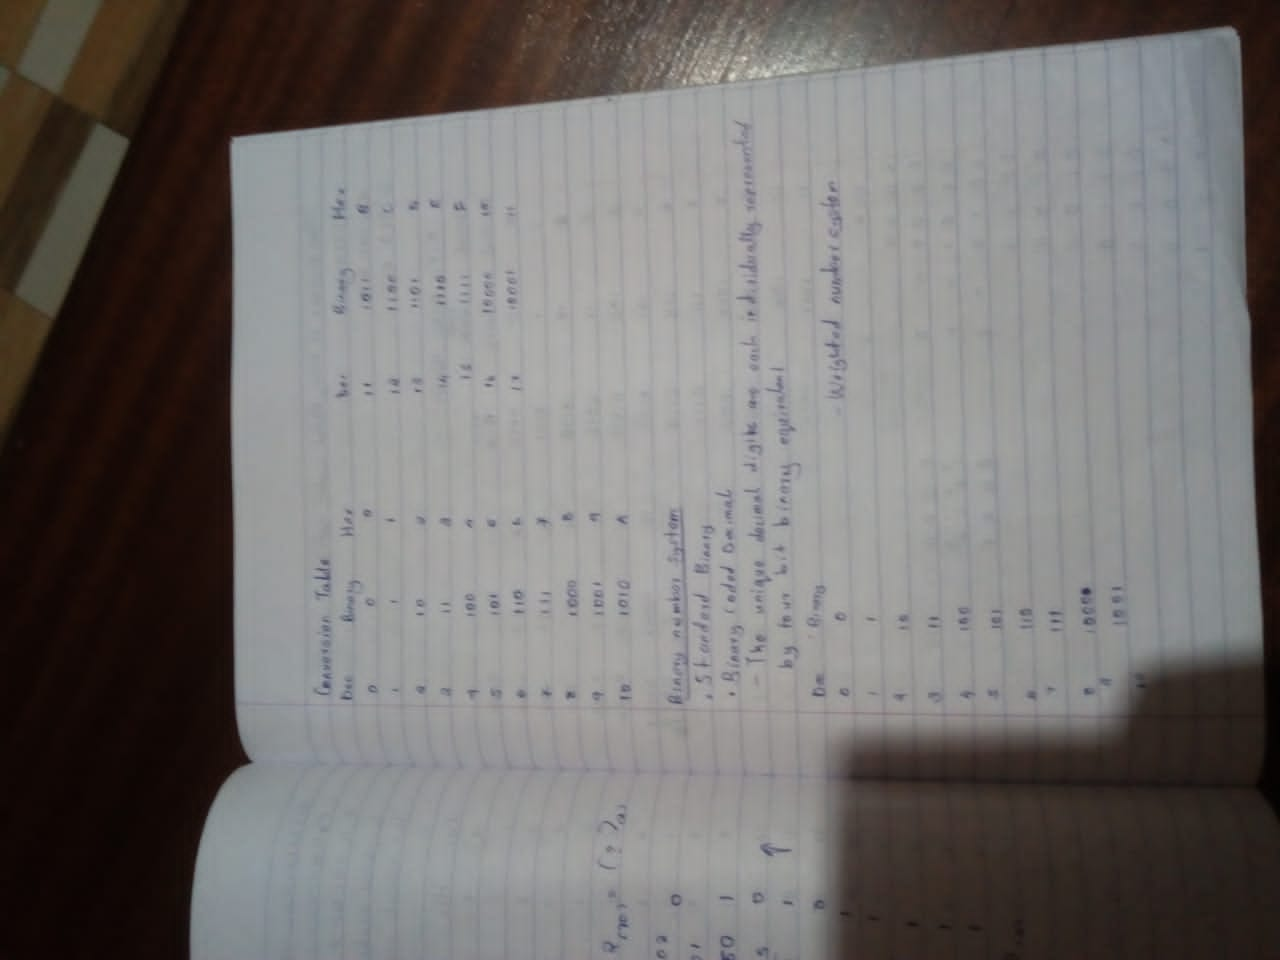 Conversion Table
Dec Binary Hex Dec Binary Hex
0 0 0 11 1011 B
1 1 1 12 1100 C
2 10 2 13 1101 D
3 11 3 14 1110 E
4 100 4 15 1111 F
5 101 5 16 10000 10
6 110 6 17 10001 11
7 111 7
8 1000 8
9 1001 9
10 1010 A
Binary number system
• Standard Binary
• Binary Coded Decimal
- The unique decimal digits are each individually represented
by four bit binary equivalent
Dec Binary - Weighted number system
0 0
1 1
2 10
3 11
4 100
5 101
6 110
7 111
8 1000
9 1001
10